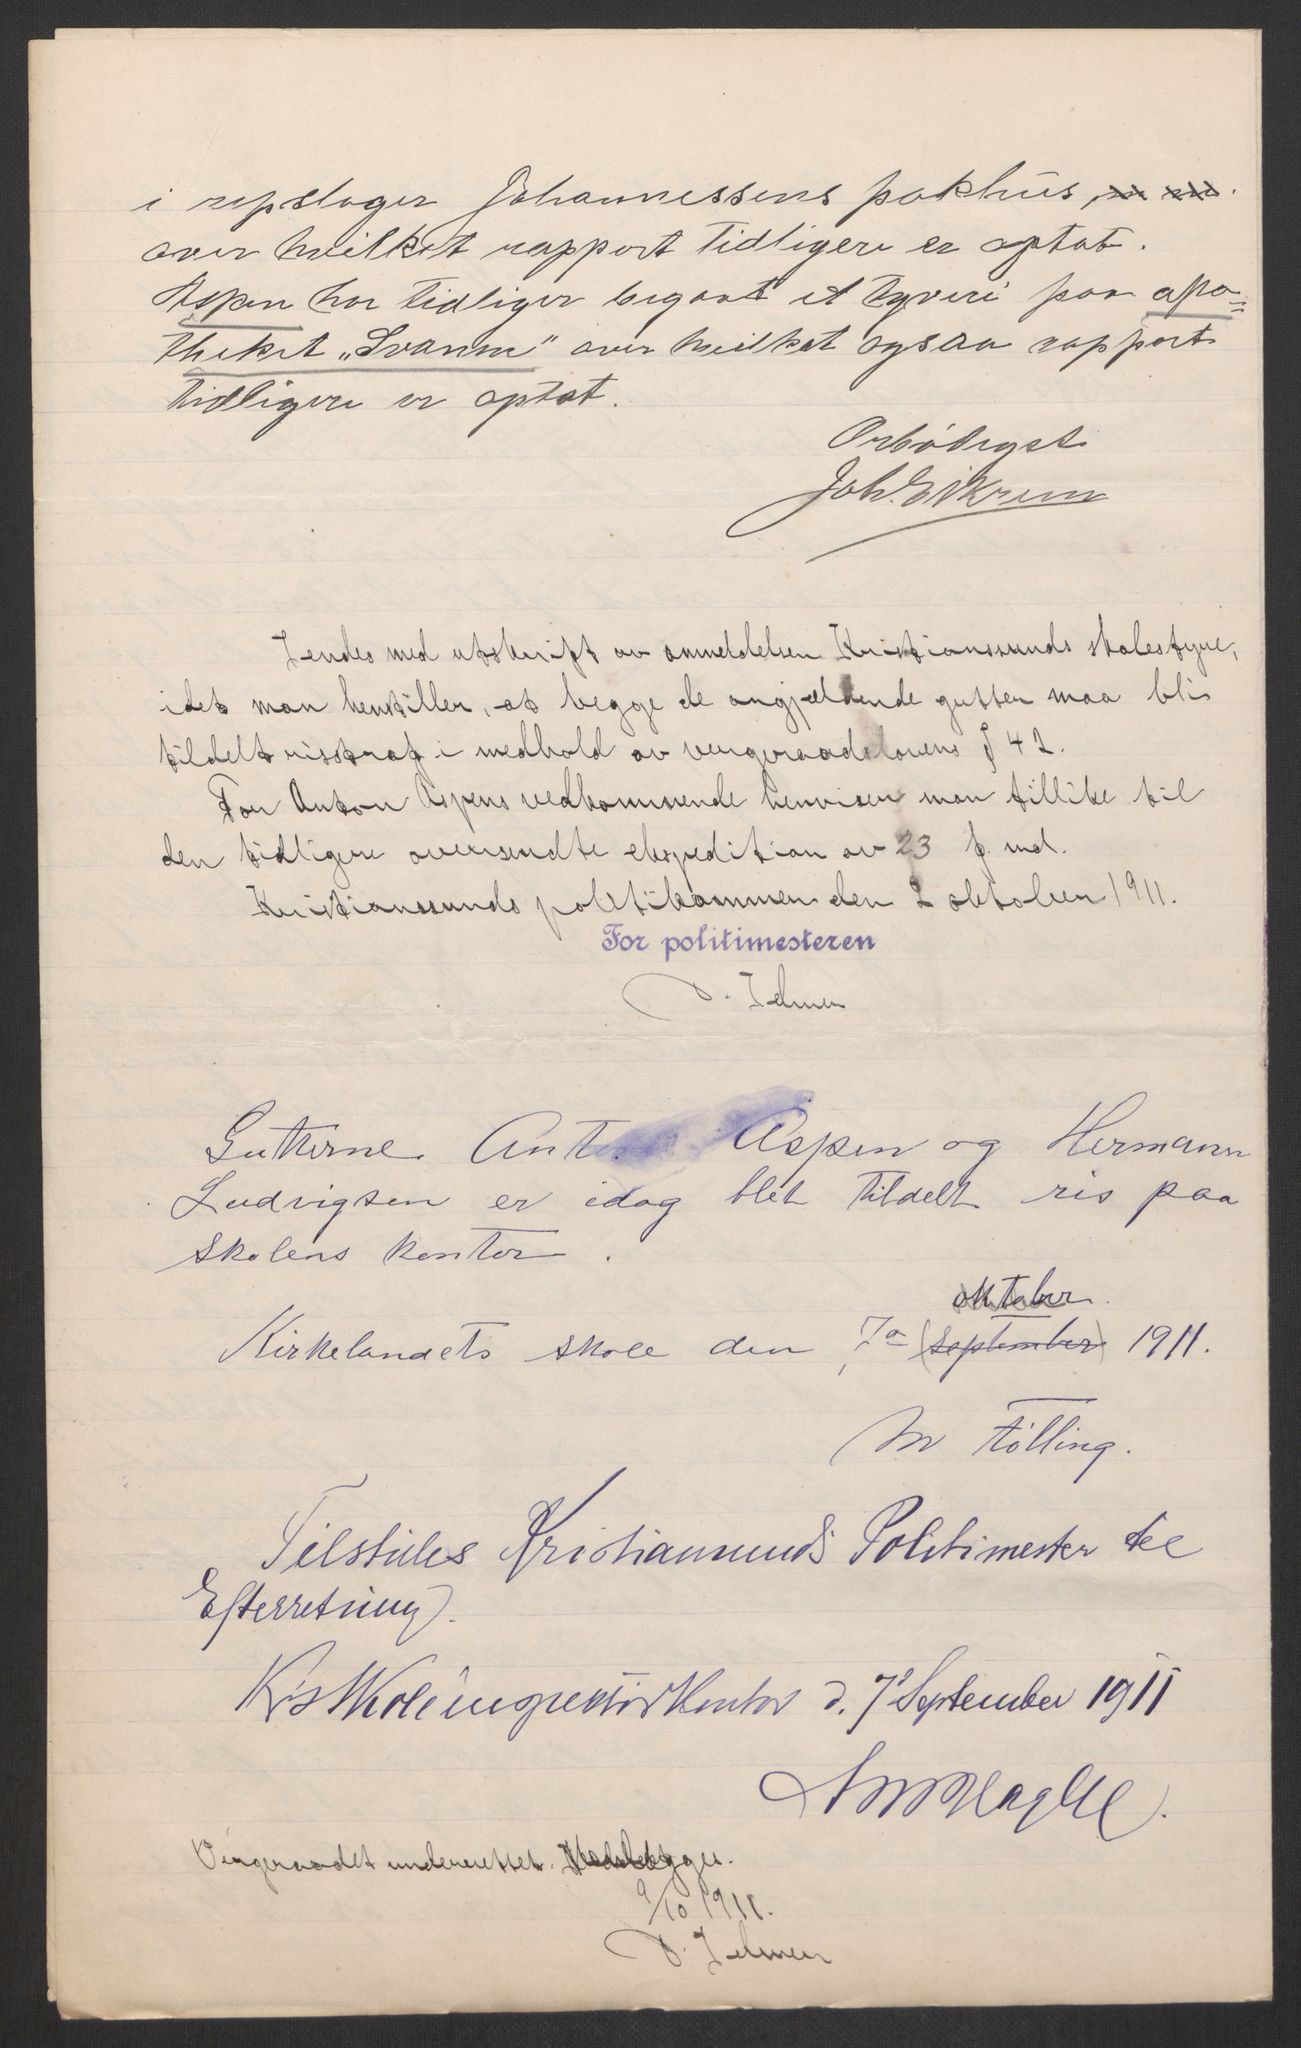 i repslager Johannessens pakhus,
over hvilket rapport tidligere er optat.
Aspen har tidliger begaat et tyveri paa apo=
theket „Svanen" over hvilket ogsaa rapport
tidligere er optat.
Ærbødigst
Joh. Eikrem
Sendes med utskrift av anmeldelsen Kristianssunds skolestyre,
idet man henstiller, at begge de angjældende gutter maa bli
tildelt risstraf i medhold av vergeraadslovens § 42.
For Anton Aspens vedkommende henviser man tillike til
den tidligere oversendte ekspedition av 23 f. md.
Kristianssunds politikammer den 2 oktober 1911.
For politimesteren
Gutterne Anton Aspen og Hermann
Ludvigsen er idag blet tildelt ris paa
skolens kontor.
oktober
Kirkelandets skole den 7de (september) 1911.
M Følling.
Tilstilles Kristiansunds Politimester til
Efterretning.
Krs Skoleinspektørkontor d. 7de September 1911
Vergeraadet underrettet. Henlægges.
9/10 1911.